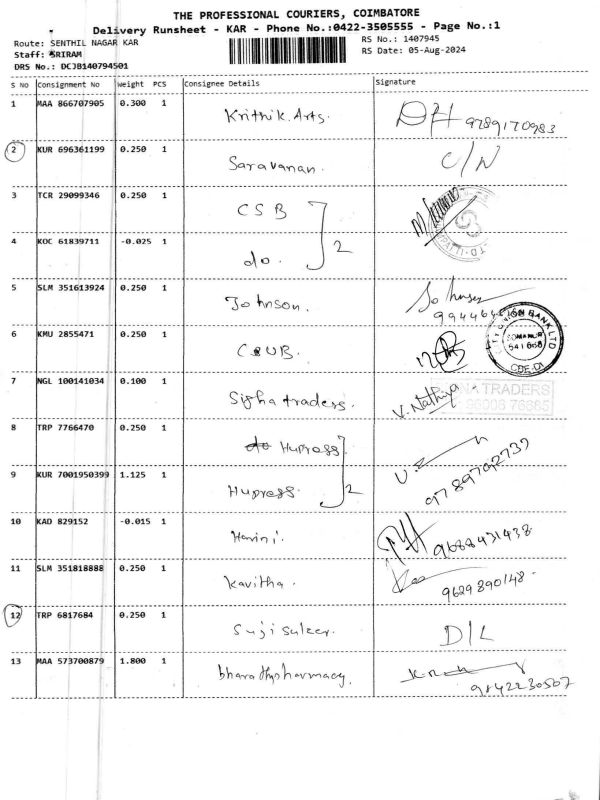 THE PROFESSIONAL COURIERS, COIMBATORE
Delivery Runsheet - KAR - Phone No.:0422-3505555 - Page No.:1
Route: SENTHIL NAGAR KAR
RS No.: 1407945
Staff: SRIRAM
RS Date: 05-Aug-2024
DRS No.: DCJB140794501
S No Consignment No Weight PCS Consignee Details Signature
1 MAA 866707905 0.300 1 Krithik. Arts. 9789170983
2 KUR 696361199 0.250 1 Saravanan. C/N
3 TCR 29099346 0.250 1 CSB
2
4 KOC 61839711 -0.025 1 do.
5 SLM 351613924 0.250 1 Johnson. Johnson
6 KMU 2855471 0.250 1 CUB.
CITY UNION BANK LTD
SOMANUR
641668
CBE-DT
7 NGL 100141034 0.100 1 Sigha traders. V. Nathiya
TRADERS
8 TRP 7766470 0.250 1 do Hupress
9789792739
2
9 KUR 7001950399 1.125 1 Hupress.
10 KAD 829152 -0.015 1 Harini. 9688431438
11 SLM 351818888 0.250 1 Kavitha. 9629890148
12 TRP 6817684 0.250 1 Suji Sulzer. D/L
13 MAA 573700879 1.800 1 bharathypharmacy. 9842230507